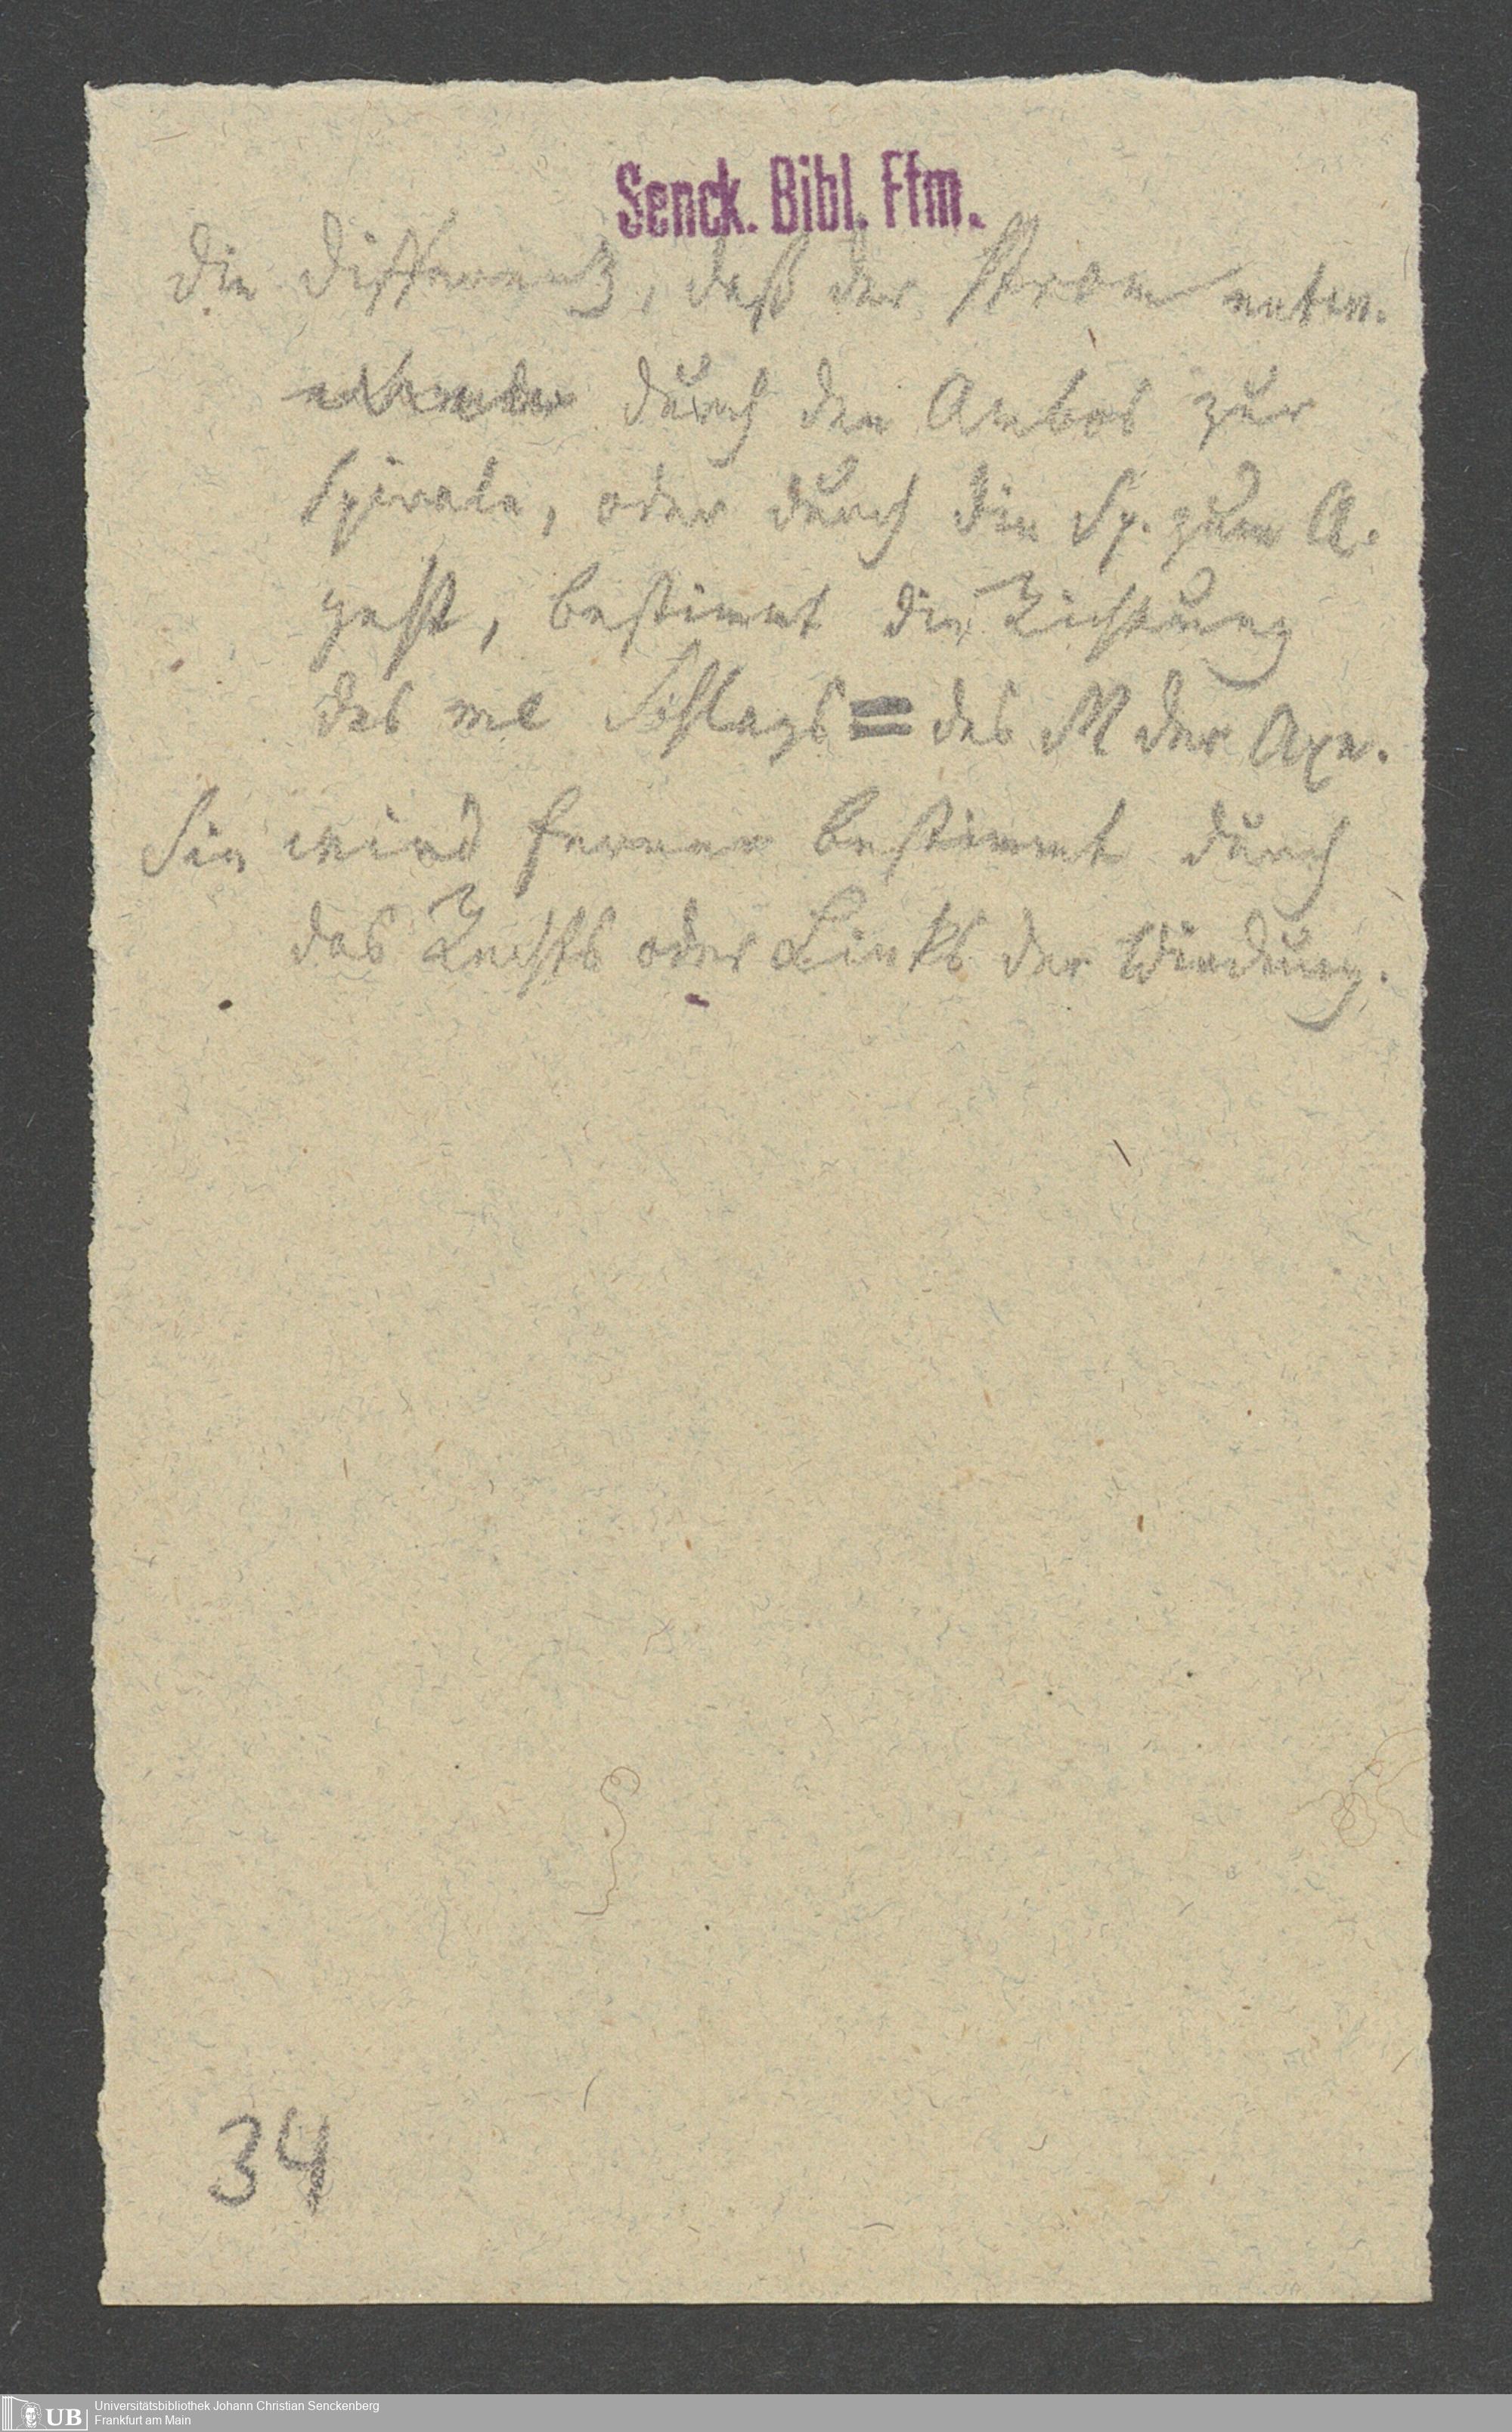 Senck. Bibl. Ffm.
Die Differenz, daß der Strom entw.
durch den Ambos zur
Spirale, oder durch die Sp. zum A.
geht, bestimmt die Richtung
des me Schlags = des M der Axe.
Sie wird ferner bestimmt durch
das Rechts oder Links der Windung.
34
UB
Universitätsbibliothek Johann Christian Senckenberg
Frankfurt am Main